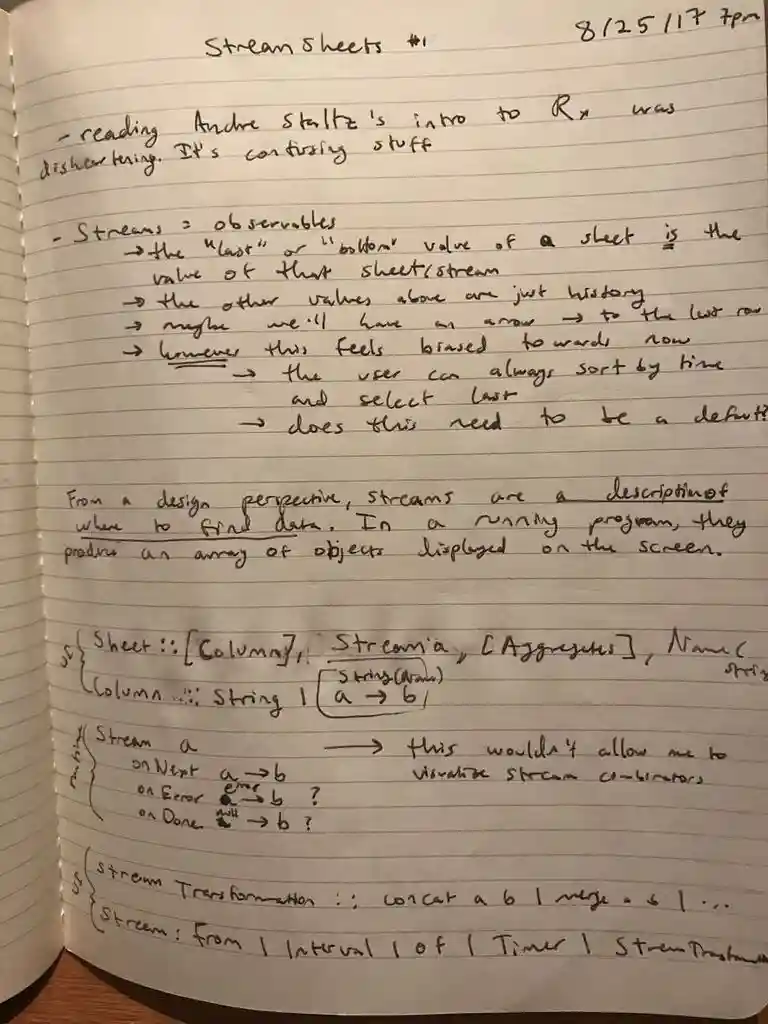 8/25/17 7pm
Stream Sheets #1
- reading Andre Staltz's intro to Rx was
disheartening. It's confusing stuff
- Streams = observables
→ the "last" or "bottom" value of a sheet is the
value of that sheet/stream
→ the other values above are just history
→ maybe we'll have an arrow → to the last row
→ however this feels biased towards now
→ the user can always sort by time
and select last
→ does this need to be a default?
From a design perspective, streams are a description of
where to find data. In a running program, they
produce an array of objects displayed on the screen.
Sheet :: [Column], Stream a, [Aggregates], Name (
String
String (Name)
Column :: String | a → b,
Stream a → this wouldn't allow me to
onNext a → b visualize stream combinators
error
onError a → b ?
null
onDone → b ?
Stream Transformation :: concat a b | merge a b | ...
Stream : From | Interval | of | Timer |